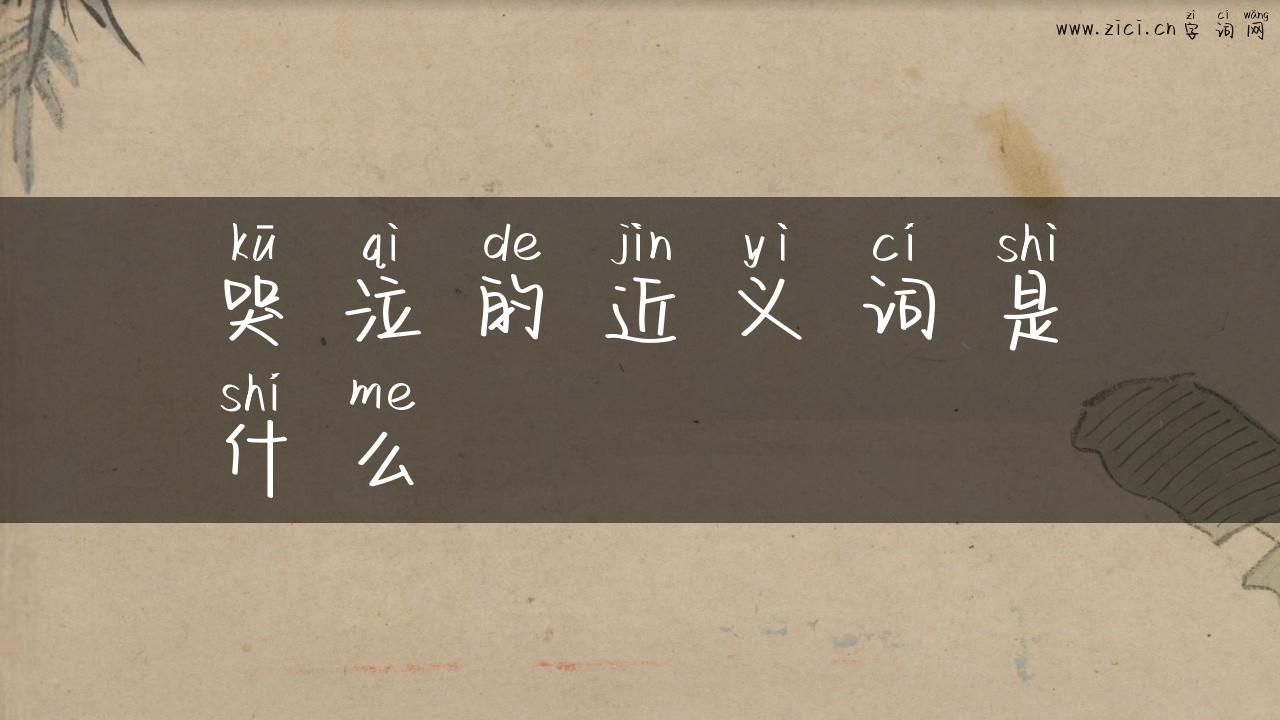 zì cí wǎng
www.zici.cn 字 词 网
kū qì de jìn yì cí shì
哭 泣 的 近 义 词 是
shí me
什 么